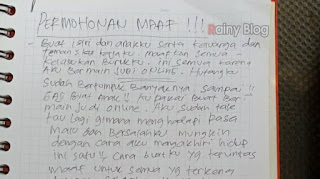 Rainy Blog
PERMOHONAN MAAF !!!
- Buat istri dan anakku serta keluarga dan
teman2 ku maafkan semua
kelakuan burukku. Ini semua karena
Aku Bermain JUDI ONLINE. Hutangku
sudah Bertumpuk Banyaknya, sampai
GAS Buat Anak2 ku pakai Buat Ber-
main Judi online. Aku sudah tak
tau lagi gimana menghadapi rasa
malu dan Bersalahku mungkin
dengan cara aku mengakhiri hidup
ini satu2 cara buatku yg
maaf untuk semua yg